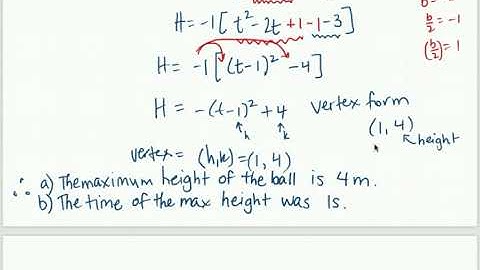 H = -1[t² - 2t + 1 - 1 - 3]
b/2 = -1
(b/2)² = 1
H = -1[(t-1)² - 4]
H = -(t-1)² + 4 vertex form
h k
(1, 4)
height
vertex = (h,k) = (1, 4)
∴ a) The maximum height of the ball is 4m.
b) The time of the max height was 1s.